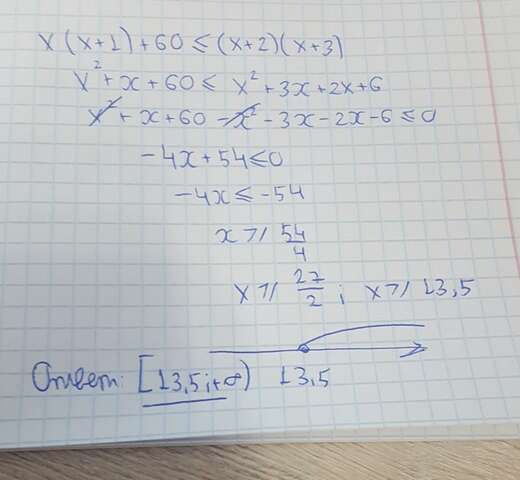 x(x+1)+60≤(x+2)(x+3)
x²+x+60≤x²+3x+2x+6
x²+x+60-x²-3x-2x-6≤0
-4x+54≤0
-4x≤-54
x≥54/4
x≥27/2; x≥13,5
Ответ: [13,5;+∞) 13,5